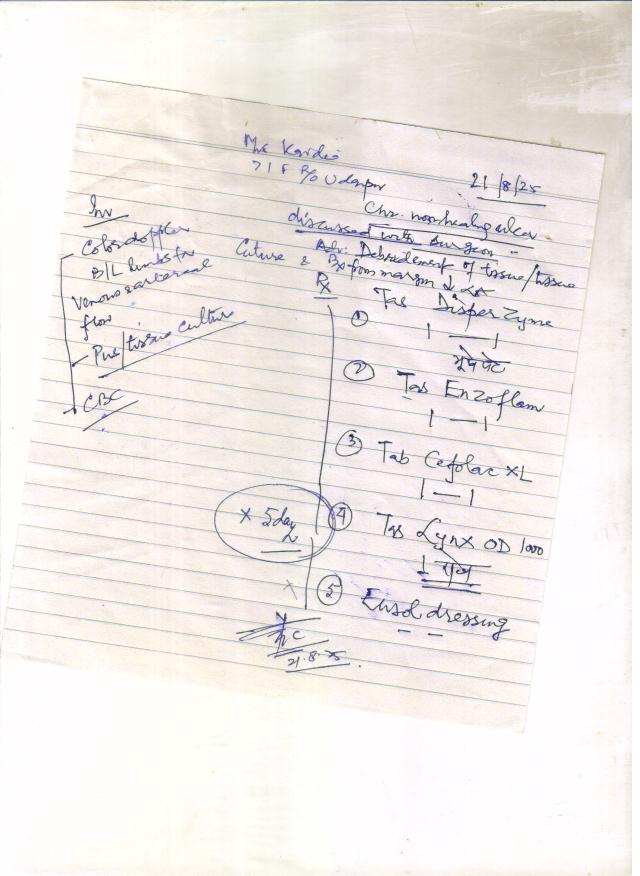 Mrs Kardi
71 F R/o Udaipur
21/8/25
Chr. nonhealing ulcer
discussed with Surgeon
Adv. Debridement of tissue/tissue
Culture & Bx from margin
Inv
Color doppler
B/L limbs for
Venous & arterial
flow
- Pus/tissue culture
- CBC
Rx
① Tab Disperzyme
1 — 1
भूखे पेट
② Tab Enzoflam
1 — 1
③ Tab Cefolac XL
1 — 1
④ Tab Lynx OD 1000
1
x 5 day
⑤ Eusol dressing
21.8.25